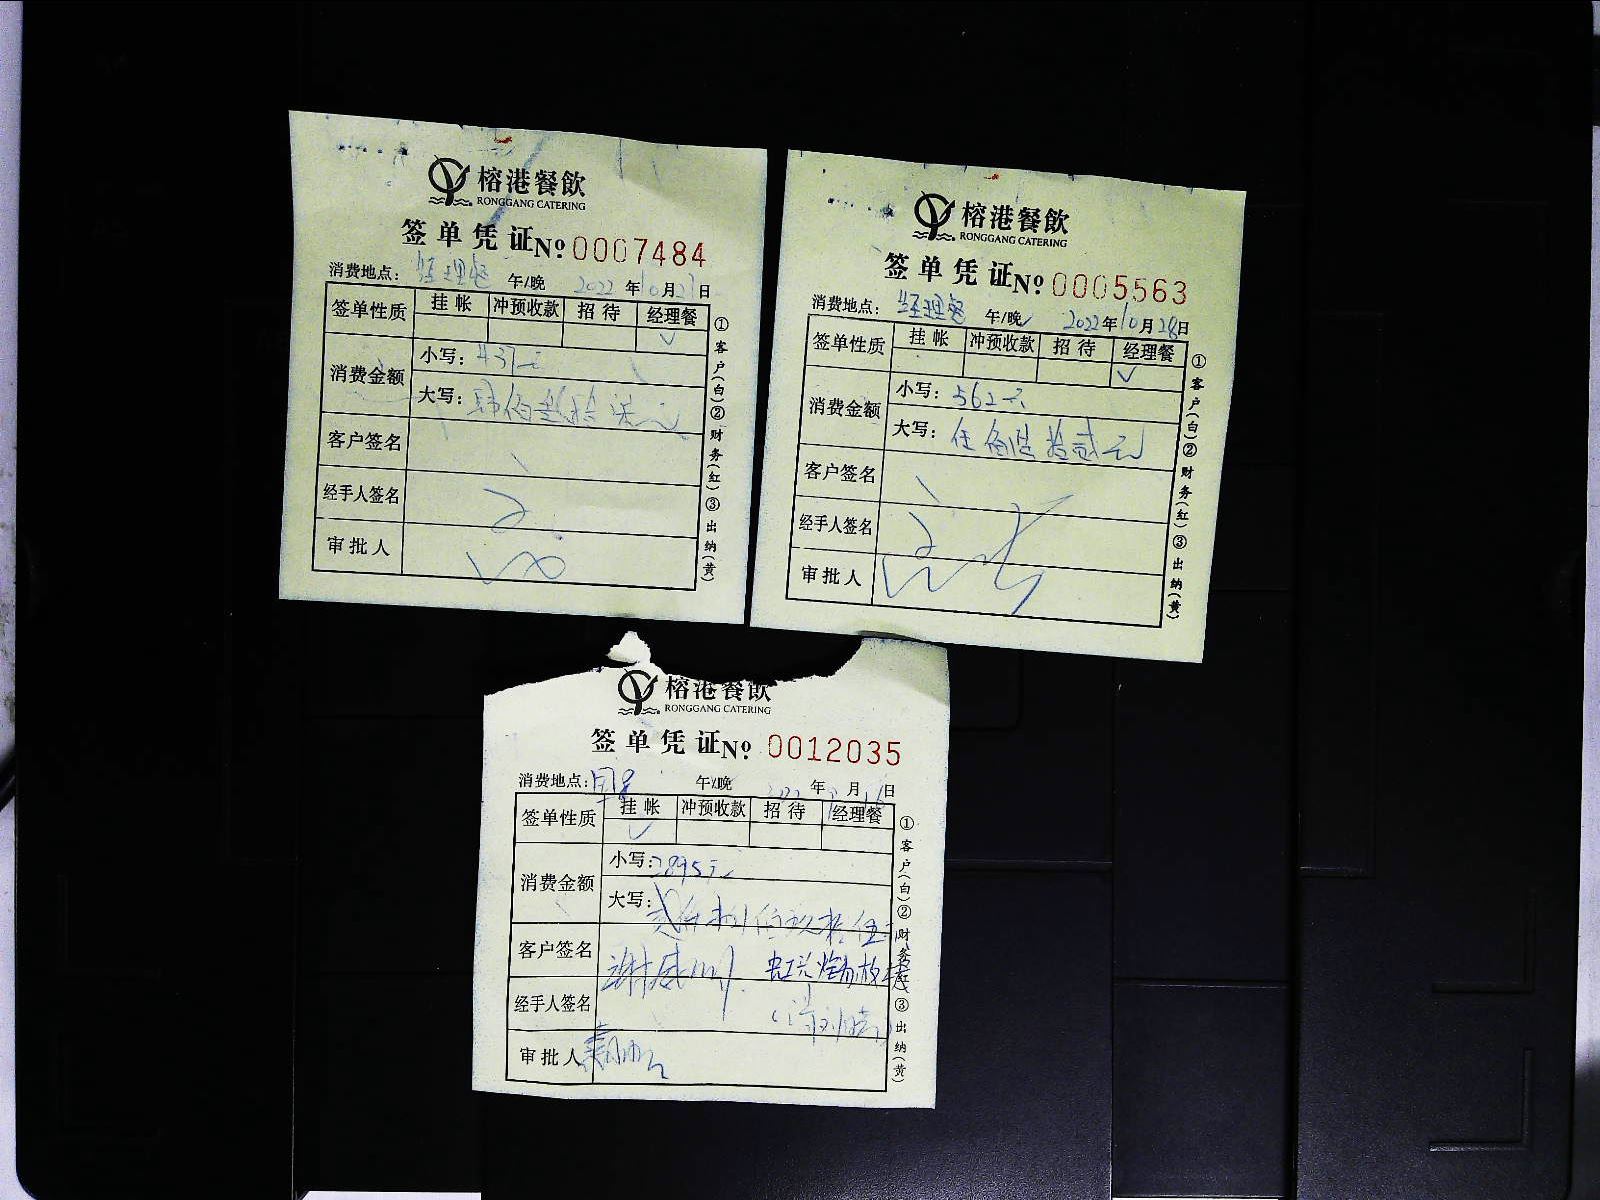 榕港餐飲
RONGGANG CATERING
签单凭证 № 0007484
消费地点: 经理餐 午/晚 2022年10月27日
签单性质 挂帐 冲预收款 招待 经理餐
✓
消费金额 小写: 437元
大写: 肆佰叁拾柒元
客户签名
经手人签名
审批人
①客户(白)②财务(红)③出纳(黄)
榕港餐飲
RONGGANG CATERING
签单凭证 № 0005563
消费地点: 经理餐 午/晚✓ 2022年10月28日
签单性质 挂帐 冲预收款 招待 经理餐
✓
消费金额 小写: 562元
大写: 伍佰陆拾贰元
客户签名
经手人签名
审批人
①客户(白)②财务(红)③出纳(黄)
榕港餐飲
RONGGANG CATERING
签单凭证 № 0012035
消费地点: 午/晚 2022年 月16日
签单性质 挂帐 冲预收款 招待 经理餐
✓
消费金额 小写: 2895元
大写: 贰仟捌佰玖拾伍元
客户签名
经手人签名
审批人
①客户(白)②财务(红)③出纳(黄)